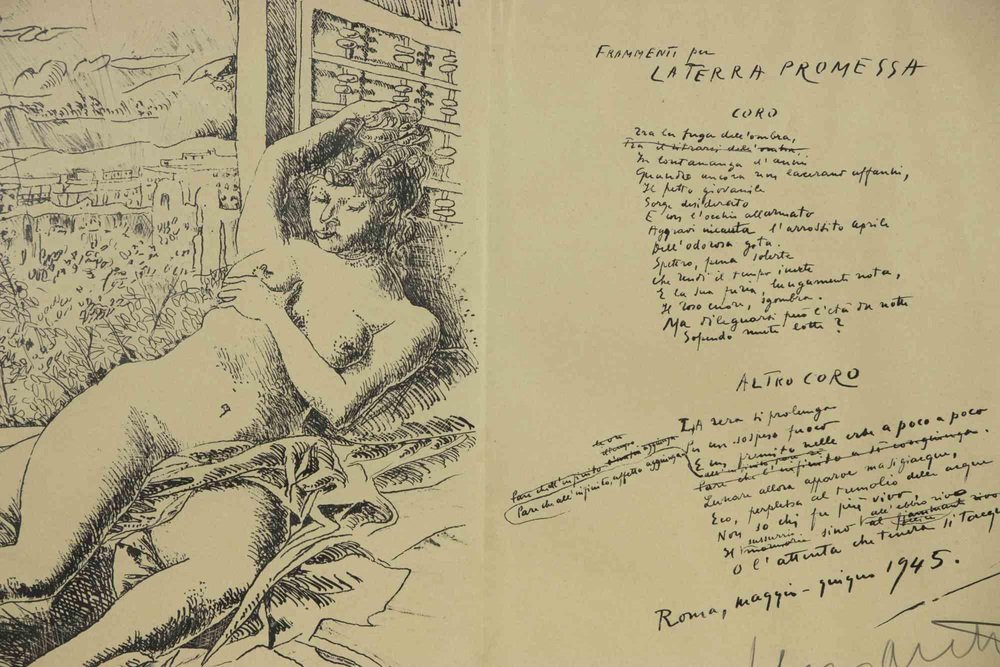 FRAMMENTI per
LA TERRA PROMESSA
CORO
Tra la fuga dell'ombra,
Tra il ritrarsi dell'ombra
In lontananza d'anni
Quando ancora non lacerano affanni,
Il petto giovanile
Sorge desiderato
E con l'occhio allarmato
Aggravi incauta l'arrossito aprile
Dell'odorosa gota.
Spettro, pena solerte
Che rendi il tempo inerte
E la sua furia lungamente nota,
Il roso cuore, sgombra.
Ma dileguarsi può l'età da notte
Sapendo mute lotte?
ALTRO CORO
LA sera si prolunga
Per un sospeso fuoco
E un fremito nelle erbe a poco a poco
Pare che l'infinito a sé congiunga.
Pare che all'infinito, aspetto aggiunga
Lunare allora
Eco, perplessa al tremolio delle acque
Non so chi fu più vivo,
sussurrio
Il sino all'ebbro rivo
O l'attenta che tenera si tacque
Roma, maggio-giugno 1945.